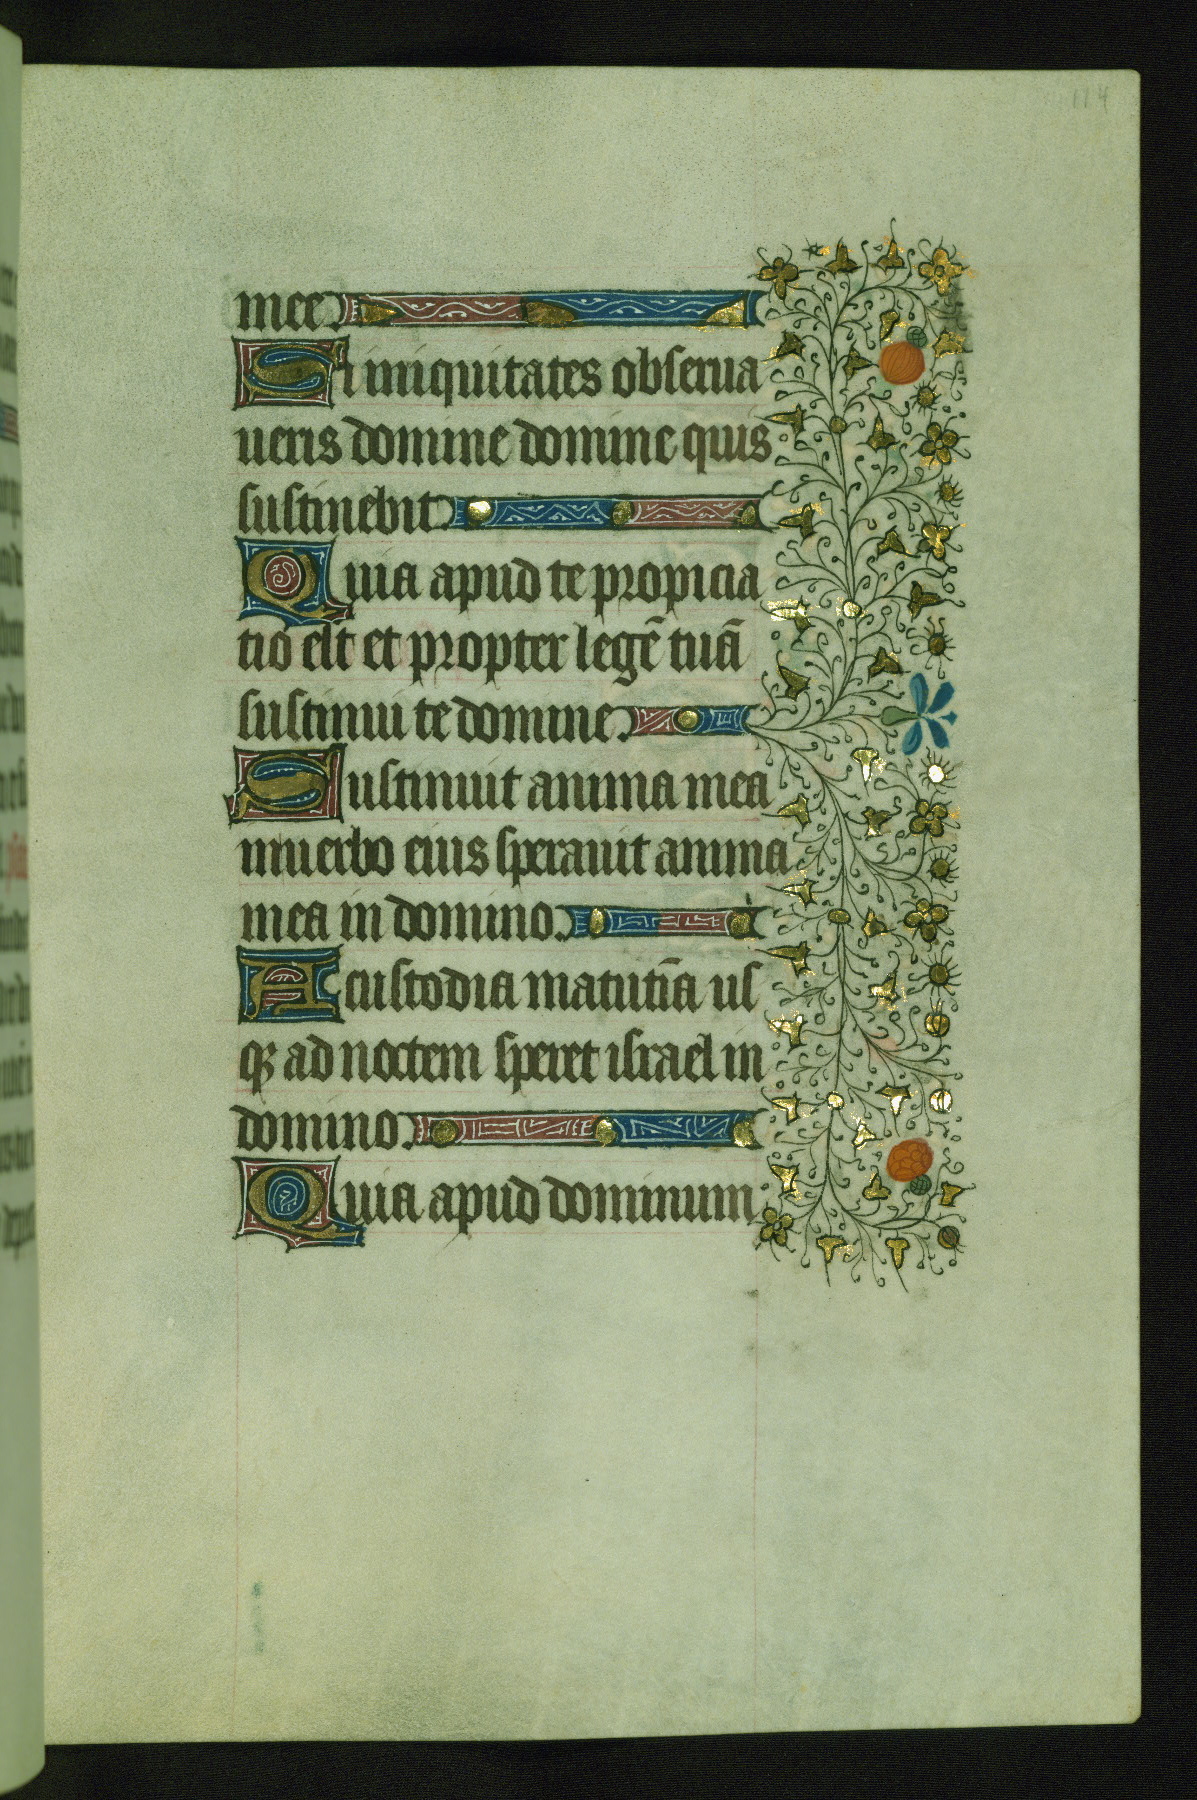 114
mee.
Si iniquitates obserua
ueris domine domine quis
sustinebit.
Quia apud te propicia
tio est et propter legē tuā
sustinui te domine.
Sustinuit anima mea
in uerbo eius sperauit anima
mea in domino.
A custodia matutīa us
qꝫ ad noctem speret israel in
domino.
Quia apud dominum